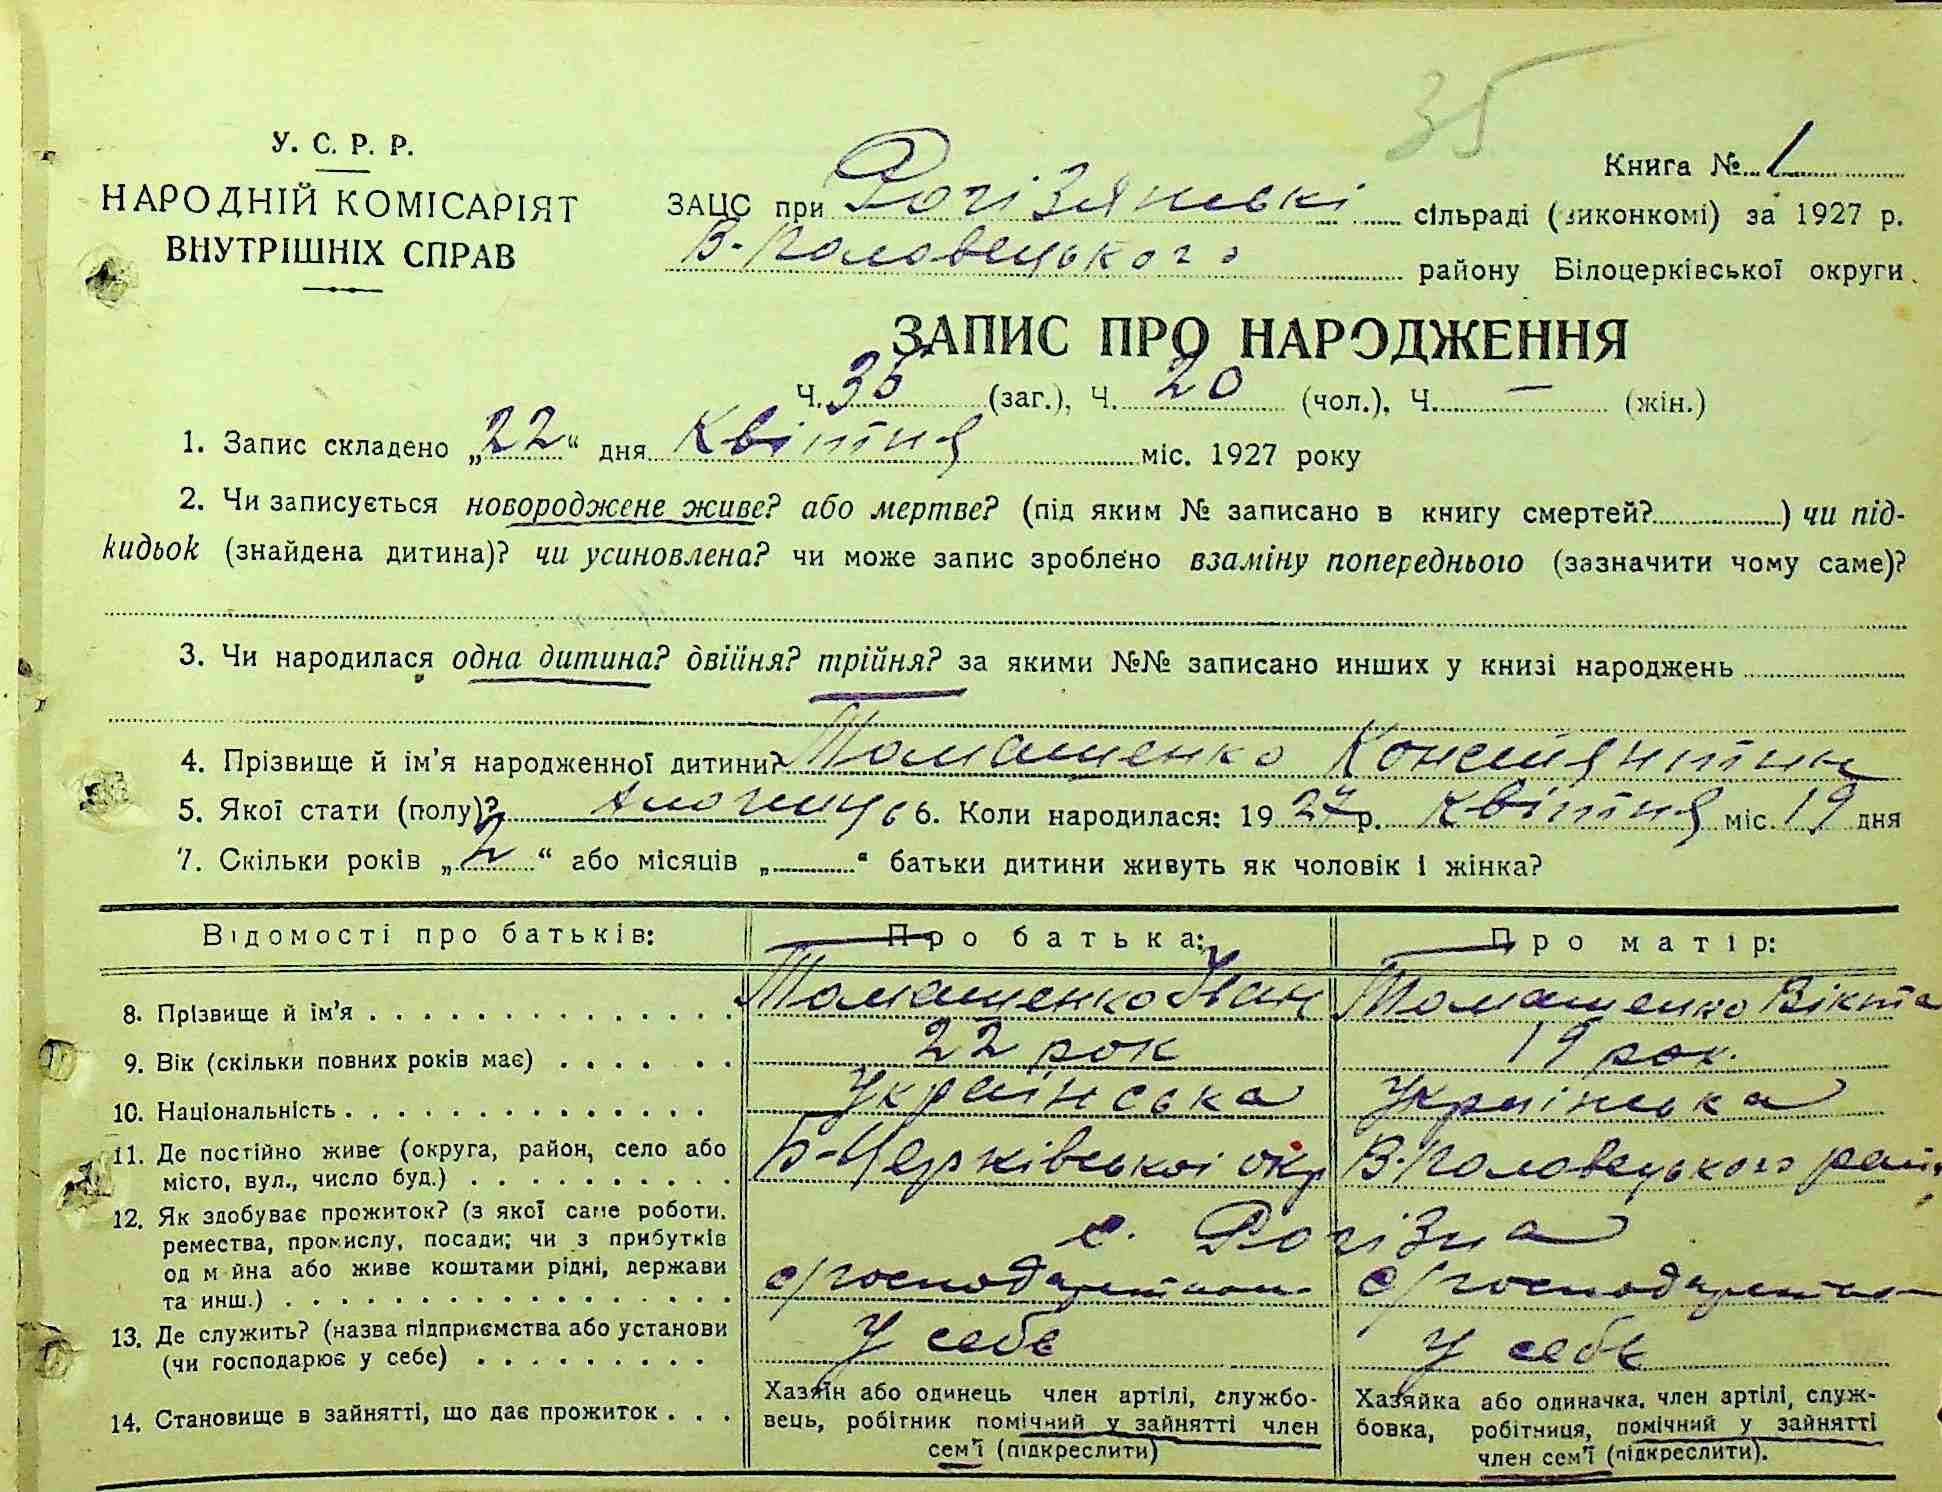 35
У. С. Р. Р.
НАРОДНІЙ КОМІСАРІЯТ
ВНУТРІШНІХ СПРАВ
Книга № 1
ЗАЦС при Рогізянські сільраді (виконкомі) за 1927 р.
В-Половецького району Білоцерківської округи
ЗАПИС ПРО НАРОДЖЕННЯ
Ч. 35 (заг.), Ч. 20 (чол.), Ч. — (жін.)
1. Запис складено „22“ дня Квітня міс. 1927 року
2. Чи записується новороджене живе? або мертве? (під яким № записано в книгу смертей? ) чи під-
кидьок (знайдена дитина)? чи усиновлена? чи може запис зроблено взаміну попереднього (зазначити чому саме)?
3. Чи народилася одна дитина? двійня? трійня? за якими №№ записано инших у книзі народжень
4. Прізвище й ім'я народженної дитини? Томашенко Констянтин
5. Якої стати (полу)? 6. Коли народилася: 1927 р. Квітня міс. 19 дня
7. Скільки років „2“ або місяців „ “ батьки дитини живуть як чоловік і жінка?
Відомості про батьків: Про батька: Про матір:
8. Прізвище й ім'я Томашенко Іван Томашенко Вікта
9. Вік (скільки повних років має) 22 рок 19 рок.
10. Національність Українська Українська
11. Де постійно живе (округа, район, село або
місто, вул., число буд.) Б-Церківської окр В-Половецького рай
с. Рогізна
12. Як здобуває прожиток? (з якої саме роботи,
ремества, промислу, посади; чи з прибутків
од майна або живе коштами рідні, держави
та инш.)
13. Де служить? (назва підприємства або установи
(чи господарює у себе) У себе У себе
14. Становище в зайнятті, що дає прожиток
Хазяїн або одинець член артілі, службо-
вець, робітник помічний у зайнятті член
сем'ї (підкреслити)
Хазяйка або одиначка, член артілі, служ-
бовка, робітниця, помічний у зайнятті
член сем'ї (підкреслити).